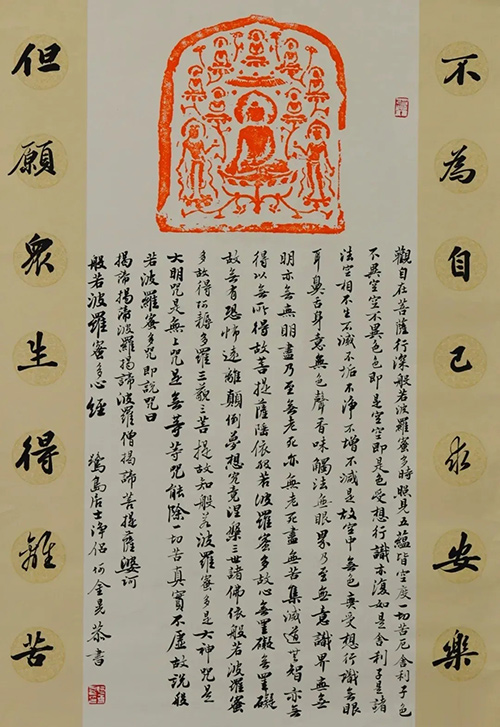 不為自己求安樂
觀自在菩薩行深般若波羅蜜多時照見五蘊皆空度一切苦厄舍利子色
不異空空不異色色即是空空即是色受想行識亦復如是舍利子是諸
法空相不生不滅不垢不淨不增不減是故空中無色無受想行識無眼
耳鼻舌身意無色聲香味觸法無眼界乃至無意識界無無
明亦無無明盡乃至無老死亦無老死盡無苦集滅道無智亦無
得以無所得故菩提薩埵依般若波羅蜜多故心無罣礙無罣礙
故無有恐怖遠離顛倒夢想究竟涅槃三世諸佛依般若波羅蜜
多故得阿耨多羅三藐三菩提故知般若波羅蜜多是大神咒是
大明咒是無上咒是無等等咒能除一切苦真實不虛故說般
若波羅蜜多咒即說咒曰
揭諦揭諦波羅揭諦波羅僧揭諦菩提薩婆訶
般若波羅蜜多心經 鷺島居士淨侶何金晃恭書
但願衆生得離苦